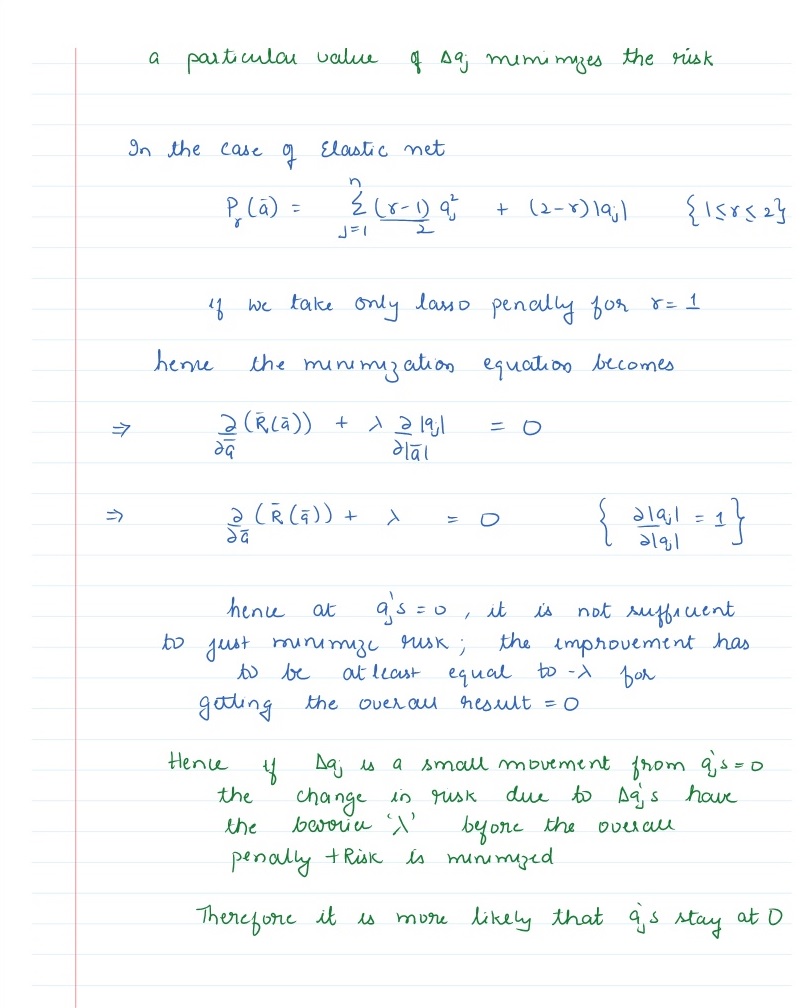 a particular value of Δaj minimizes the risk
In the case of Elastic net
Pγ(ā) = Σ_{j=1}^{n} (γ-1)/2 aj² + (2-γ)|aj| {1≤γ≤2}
if we take only lasso penalty for γ = 1
hence the minimization equation becomes
⇒ ∂/∂ā (R̄(ā)) + λ ∂|aj|/∂|ā| = 0
⇒ ∂/∂ā (R̄(ā)) + λ = 0 { ∂|aj|/∂|aj| = 1 }
hence at aj's = 0, it is not sufficient
to just minimize risk; the improvement has
to be atleast equal to -λ for
getting the overall result = 0
Hence if Δaj is a small movement from aj's = 0
the change in risk due to Δaj's have
the barrier 'λ' before the overall
penalty + Risk is minimized
Therefore it is more likely that aj's stay at 0